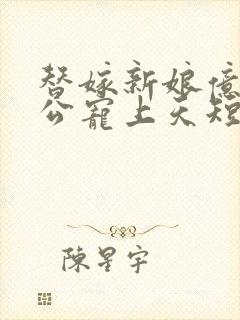 替嫁新娘億
公寵上天短
陳星宇